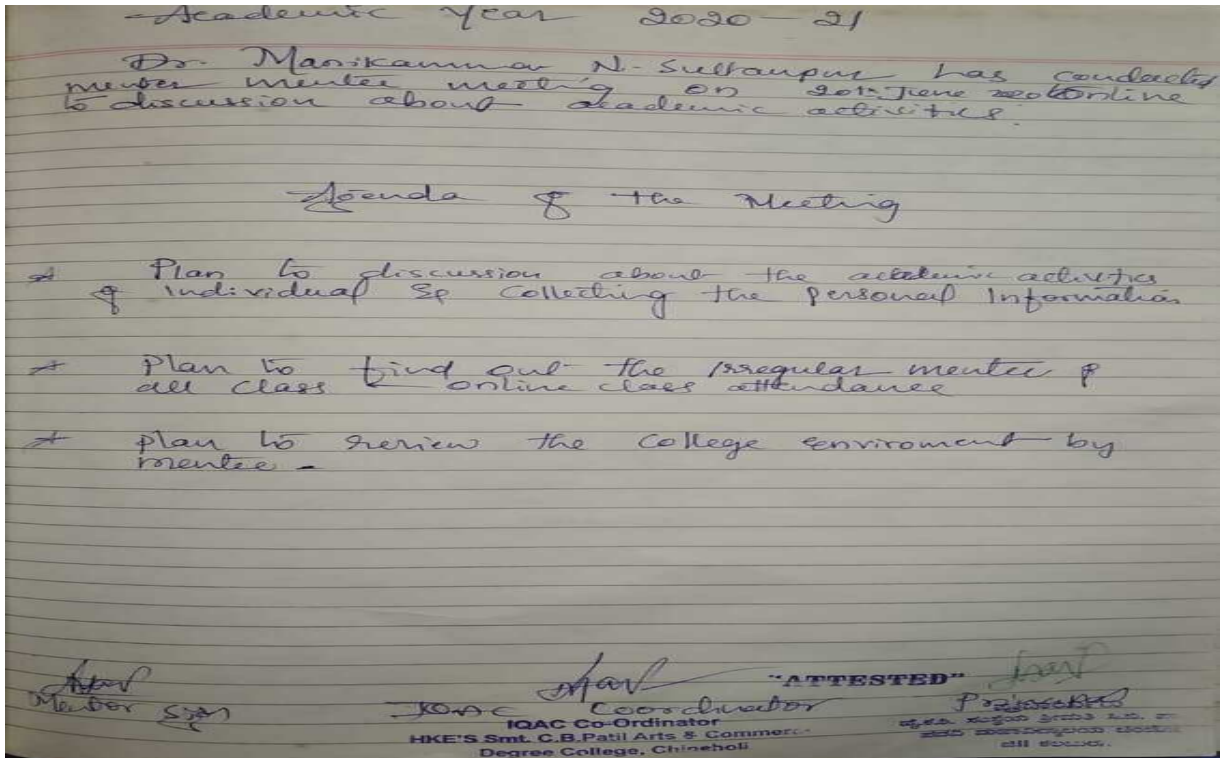 Academic Year 2020-21
Dr. Manikamma N. Sultanpur has conducted
mentor mentee meeting on 20th June online
to discussion about academic activities.
Agenda of the Meeting
* Plan to discussion about the academic activities
of individual & Collecting the personal Information
* Plan to find out the irregular mentee of
all class & online class attendance
* plan to review the College enviroment by
mentee -
Mentor Sign
IQAC Coordinator
"ATTESTED"
IQAC Co-Ordinator
HKE'S Smt. C.B.Patil Arts & Commerc
Degree College, Chincholi